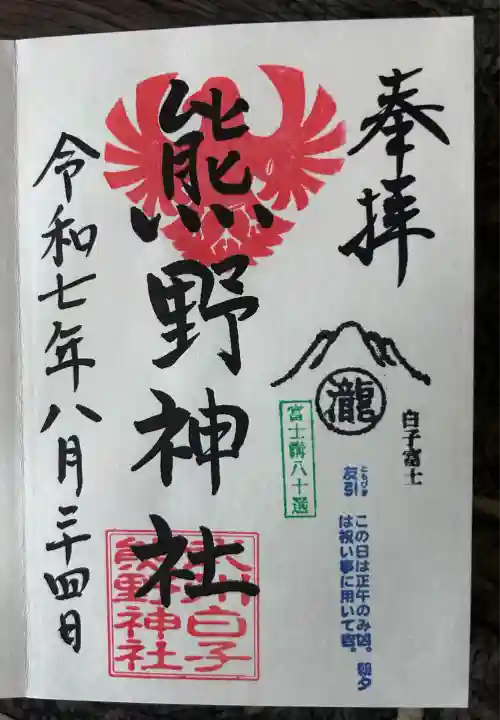 奉拝
瀧
白子富士
富士講八十選
ともびき
友引 この日は正午のみ凶。朝夕
は祝い事に用いて吉。
熊野神社
白子
熊野神社
令和七年八月二十四日